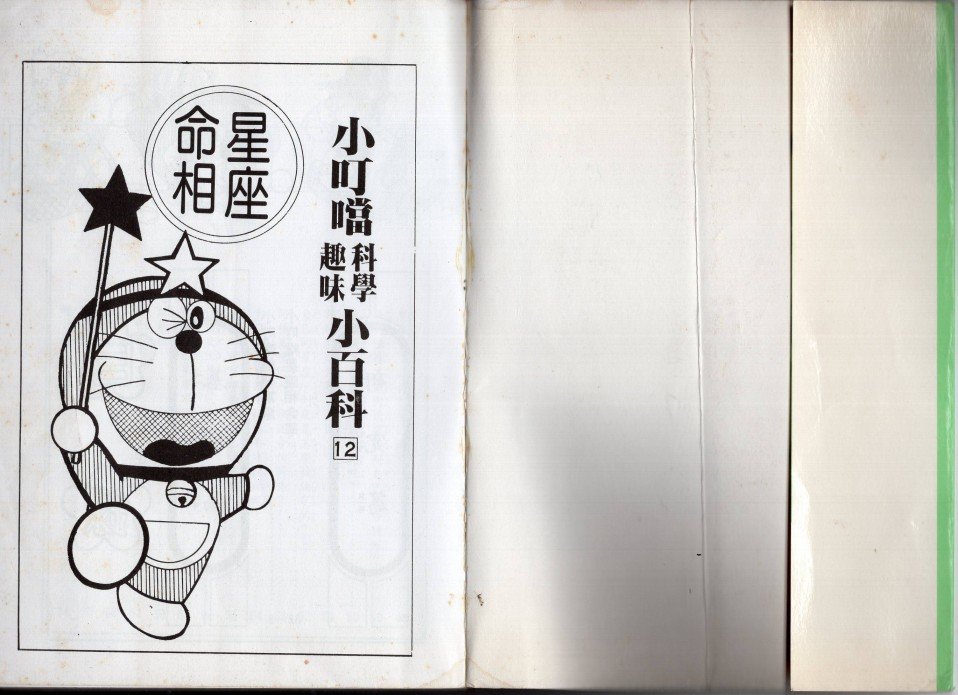 小叮噹科學趣味小百科
12
星座
命相